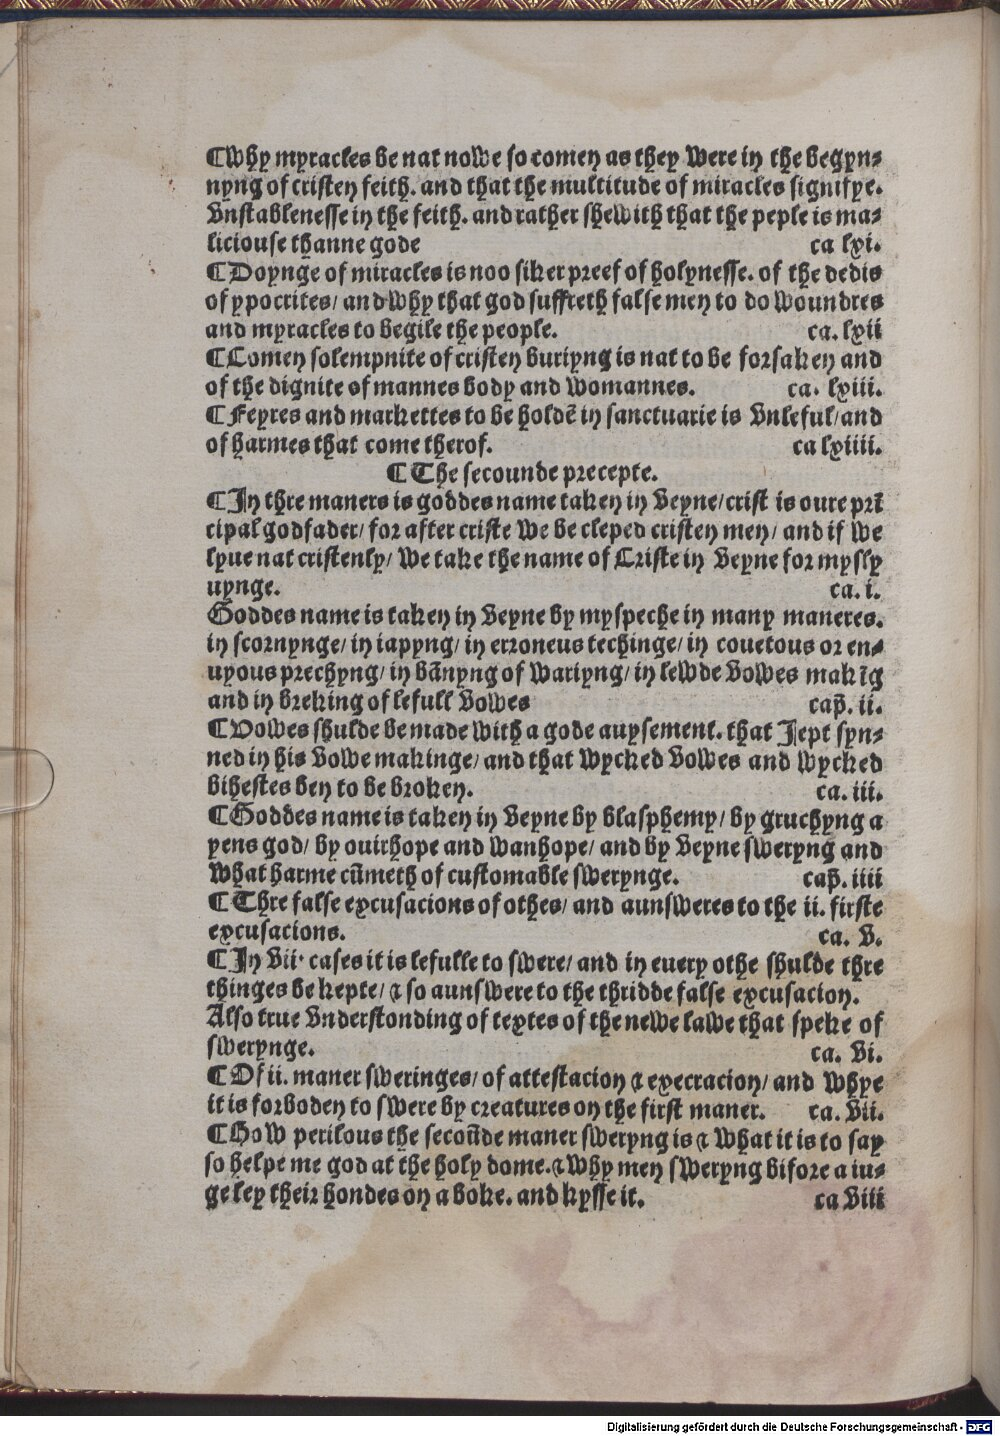 ¶Why myracles be nat nowe so comen as they were in the begyn-
nyng of cristen feith. and that the multitude of miracles signifye.
vnstablenesse in the feith. and rather shewith that the peple is ma-
liciouse thanne gode ca lxi.
¶Doynge of miracles is noo siker preef of holynesse. of the dedis
of ypocrites/ and why that god suffreth false men to do woundres
and myracles to begile the people. ca. lxii
¶Comen solempnite of cristen buriyng is nat to be forsaken and
of the dignite of mannes body and womannes. ca. lxiii.
¶Feyres and markettes to be holdē in sanctuarie is vnleful/and
of harmes that come therof. ca lxiiii.
¶The secounde precepte.
¶In thre maners is goddes name taken in veyne/crist is oure prī
cipal godfader/ for after criste we be cleped cristen men/ and if we
lyue nat cristenly/ we take the name of Criste in veyne for mysly
uynge. ca. i.
Goddes name is taken in veyne by myspeche in many maneres.
in scornynge/ in iapyng/ in erroneus techinge/ in couetous or en-
uyous prechyng/ in bānyng of wariyng/ in lewde vowes makīg
and in breking of lefull vowes cap̄. ii.
¶Vowes shulde be made with a gode auysement. that Jept syn-
ned in his vowe makinge/ and that wycked vowes and wycked
bihestes ben to be broken. ca. iii.
¶Goddes name is taken in veyne by blasphemy/ by gruchyng a
yens god/ by ouirhope and wanhope/ and by veyne sweryng and
what harme cūmeth of customable swerynge. cap̄. iiii
¶Thre false excusacions of othes/ and aunsweres to the ii. firste
excusacions. ca. v.
¶In vii. cases it is lefulle to swere/ and in euery othe shulde thre
thinges be kepte/ ⁊ so aunswere to the thridde false excusacion.
Also true vnderstonding of textes of the newe lawe that speke of
swerynge. ca. vi.
¶Of ii. maner sweringes/ of attestacion ⁊ execracion/ and whye
it is forboden to swere by creatures on the first maner. ca. vii.
¶How perilous the secoūde maner sweryng is ⁊ what it is to say
so helpe me god at the holy dome. ⁊ why men sweryng bifore a iu-
ge ley their hondes on a boke. and kysse it. ca viii
Digitalisierung gefördert durch die Deutsche Forschungsgemeinschaft - DFG